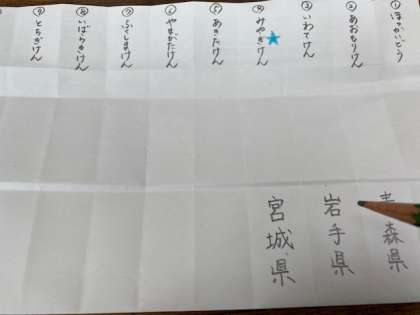 ①ほっかいどう
②あおもりけん
③いわてけん
④みやぎけん
⑤あきたけん
⑥やまがたけん
⑦ふくしまけん
⑧いばらきけん
⑨とちぎけん
青森県
岩手県
宮城県